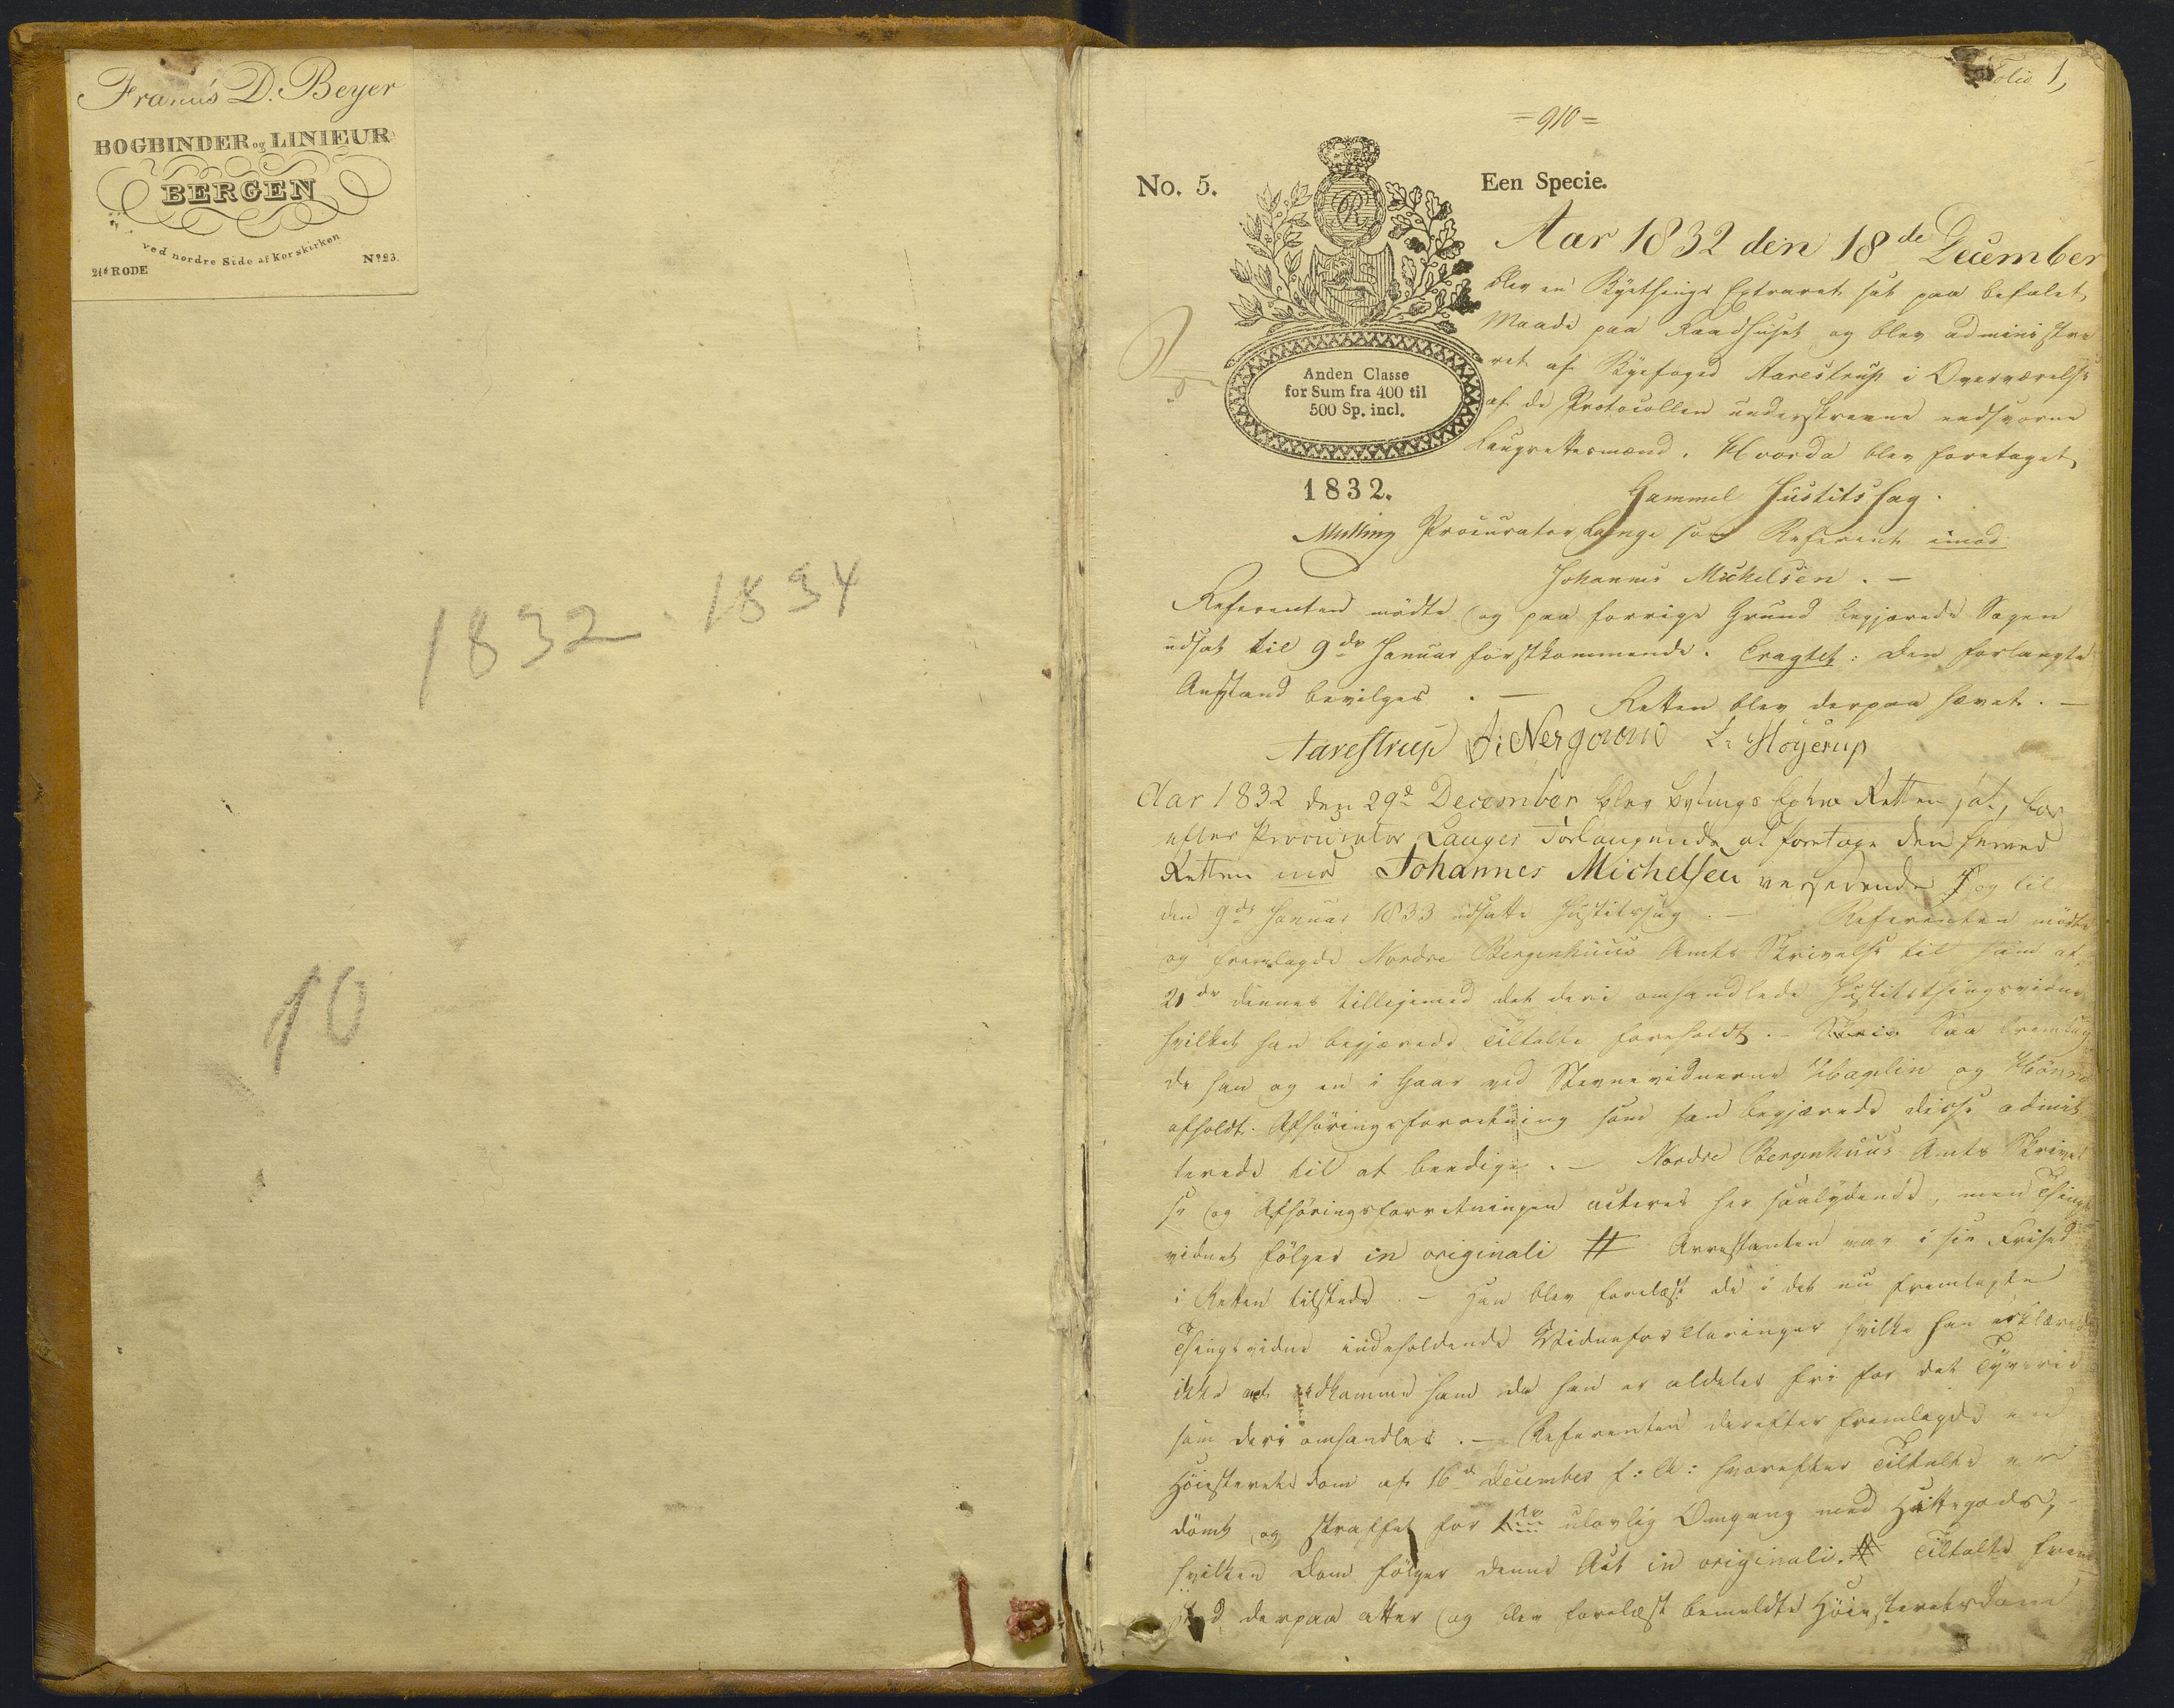 Francis D. Beyer
BOGBINDER og LINIEUR
BERGEN
ved nordre Side af Korskirken
21de RODE No 23.
1832 - 1834
10
Folio 1,
=910=
No. 5.
Een Specie.
Anden Classe
for Sum fra 400 til
500 Sp. incl.
1832.
Aar 1832 den 18de December
blev en Byethings Extraret sat paa befalet
Maade paa Raadhuset og blev administre
ret af Byefoged Aarestrup i Overværelse
af de Protocollen underskrevne eedsvorne
Laugrettesmænd. Hvorda blev foretaget
Gammel Justitssag.
Procurator Lange som Referent imod
Johannes Michelsen. -
Referenten mödte og paa forrige Grund begjærede Sagen
udsat til 9de Januar förstkommende. Eragtet: Den forlangte
Anstand bevilges. - Retten blev derpaa hævet. -
Aarestrup L: Höyerup
Aar 1832 den 29de December blev Bytings Extra Retten sat, for
efter Procurator Langes Forlangende at foretage den herved
Retten mod Johannes Michelsen verserende og til
den 9de Januar 1833 udsatte Justitssag. - Referenten mödte
og fremlagde Nordre Bergenhuus Amts Skrivelse til ham af
21de dennes tilligemed det deri omhandlede Justitsthingsvidne
hvilket han begjærede Tiltalte foreholdt. - Saa fremlag
de han og en i Gaar ved Stevnevidnerne Hagelin og
afholdt Afhöringsforretning som han begjærede disse admit
terede til at beedige. - Nordre Bergenhuus Amts Skrivel
se og Afhöringsforretningen acteres her saalydende, men Things
vidnet fölger in originali # Arrestanten var i sin Frihed
i Retten tilstede. - Han blev forelæst de i det nu fremlagte
Thingsvidne indeholdende Vidneforklaringer hvilke han erklærede
ikke at vedkomme ham da han er aldeles fri for det Tyverie
som deri omhandles. - Referenten derefter fremlagde en
Höiesteretsdom af 16de December f: A: hvorefter Tiltalte er
dömt og straffet for ulovlig Omgang med Hittegods,
hvilken Dom fölger denne Act in originali. # Tiltalte frem
stod derpaa atter og blev forelæst bemeldte Höiesteretsdom